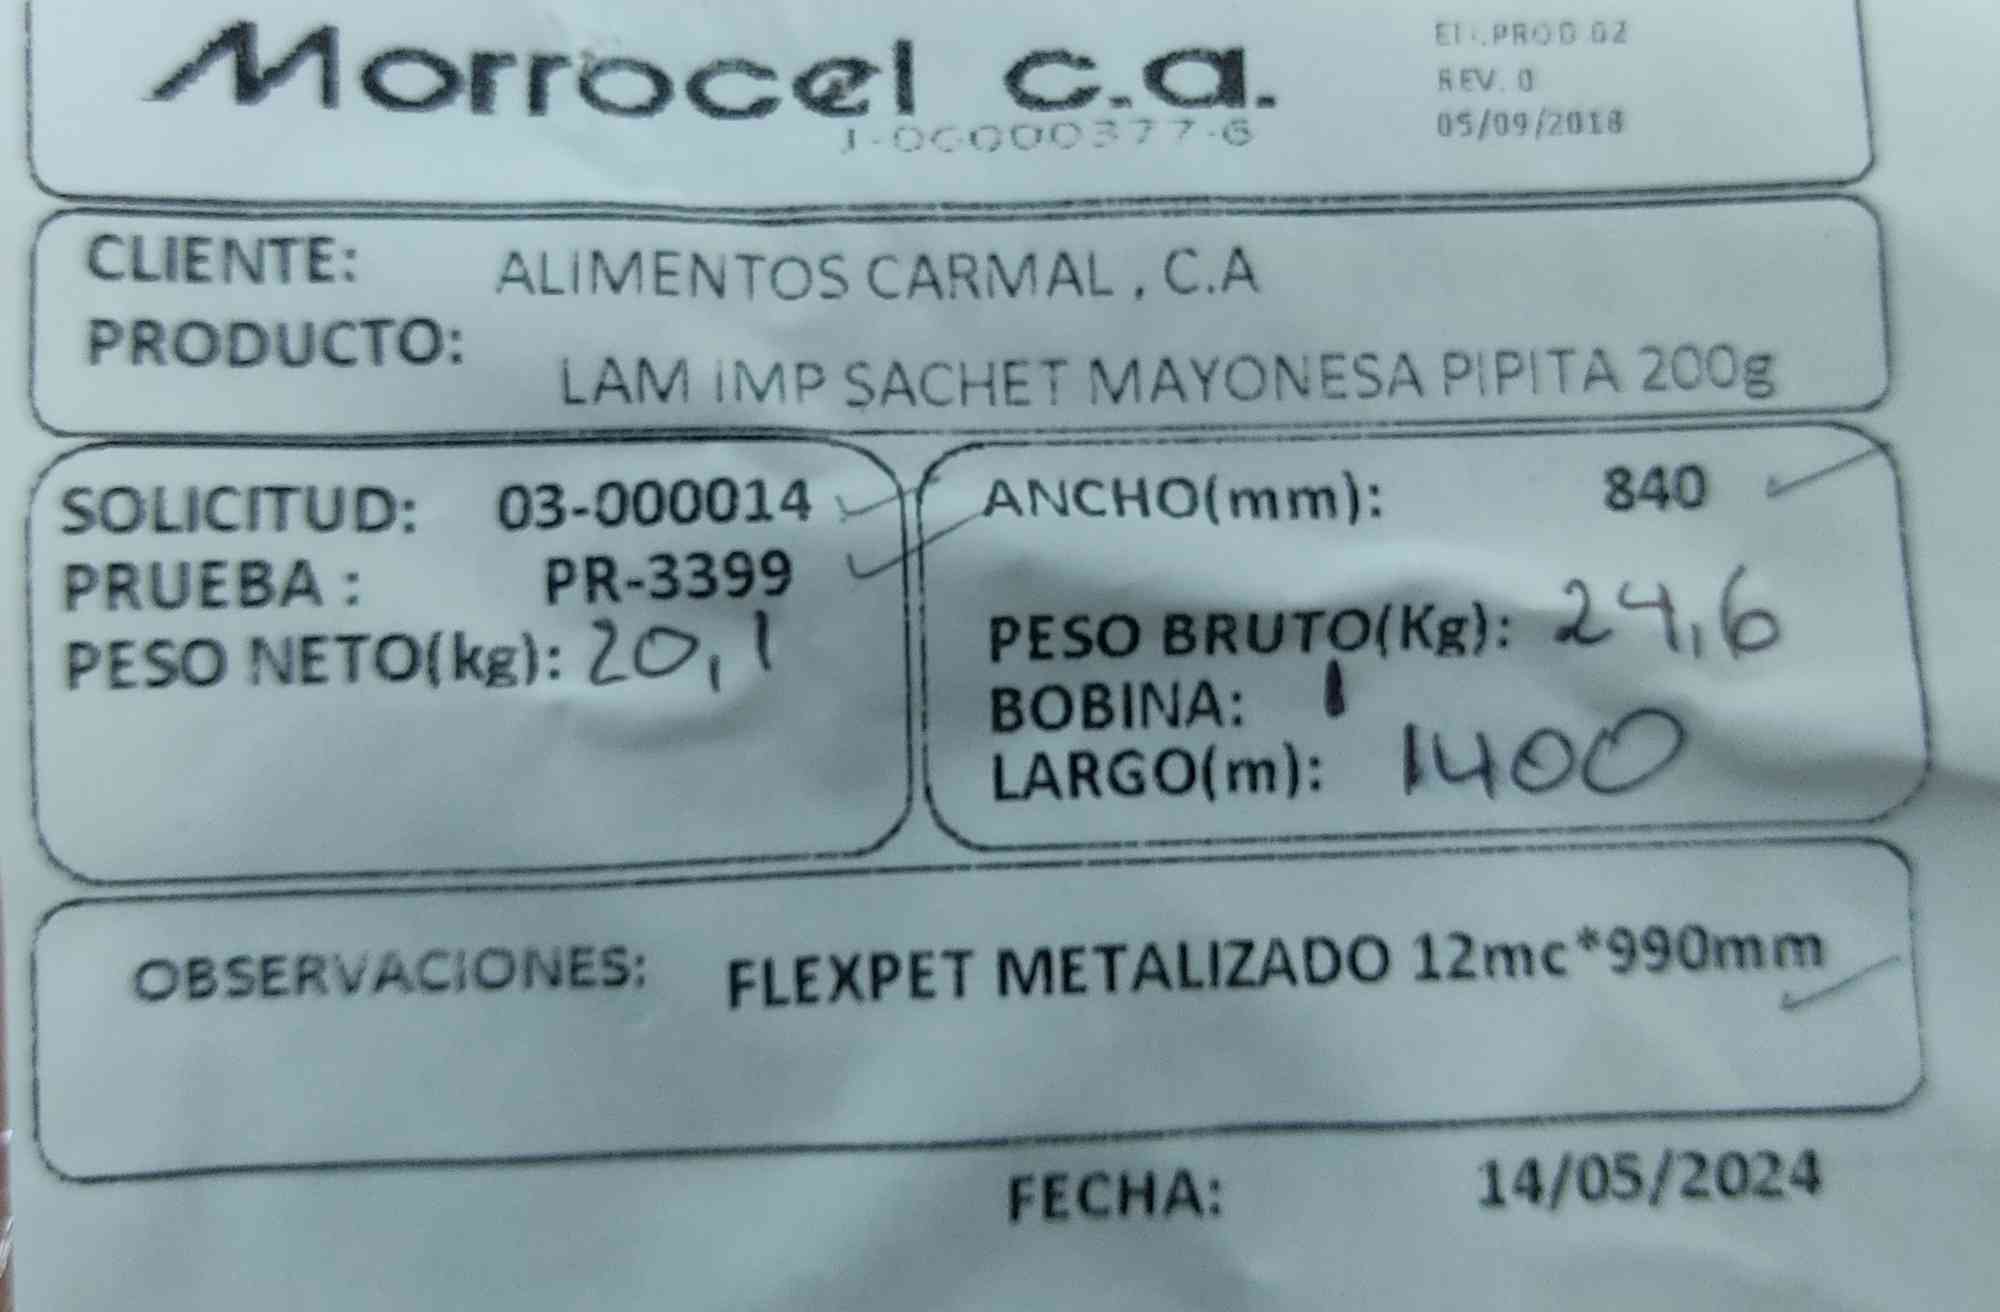 Morrocel c.a.
J-06000377-6
REV. 0
05/09/2018
CLIENTE: ALIMENTOS CARMAL , C.A
PRODUCTO: LAM IMP SACHET MAYONESA PIPITA 200g
SOLICITUD: 03-000014
PRUEBA : PR-3399
PESO NETO(kg): 20,1
ANCHO(mm): 840
PESO BRUTO(Kg): 24,6
BOBINA: 1
LARGO(m): 1400
OBSERVACIONES: FLEXPET METALIZADO 12mc*990mm
FECHA: 14/05/2024